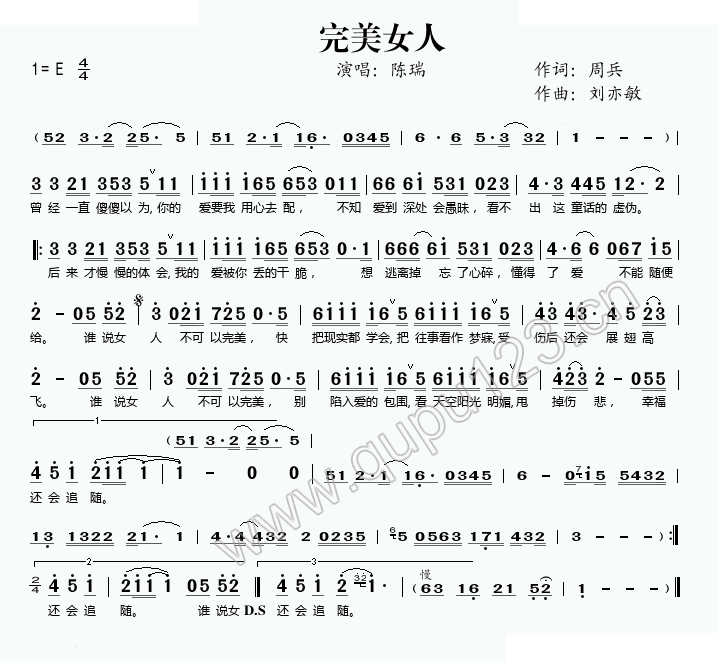 完美女人
1= E 4/4 演唱：陈瑞 作词：周兵
作曲：刘亦敏
( 52 3·2 25· 5 | 51 2·1 16· 0345 | 6·6 5·3 32 | 1 - - - ) |
3 3 21 353 5 11 | 111 165 653 011 | 66 61 531 023 | 4·3 445 12·2 |
曾 经 一直 傻傻以 为,你的 爱要我 用心去 配， 不知 爱到 深处 会愚昧，看不 出 这 童话的 虚伪。
3 3 221 353 5 11 | 111 165 653 0·1 | 666 61 531 023 | 4·6 6 067 15 |
后 来 才慢 慢的体 会,我的 爱被你 丢的干 脆， 想 逃离掉 忘了心碎，懂得 了 爱 不能 随便
2 - 05 52 | 3 021 725 0·5 | 6111 16 5 6111 16 5 | 423 221 21 65 |
给。 谁 说女 人 不可 以完美， 快 把现实都 学会,把 往事看作 梦寐,受 伤后 还会 展 翅 高
2 - 05 52 | 3 021 725 0·5 | 6111 16 5 6111 16 5 | 423 2 - 055 |
飞。 谁 说女 人 不可 以完美， 别 陷入爱的 包围,看 天空阳光 明媚,甩 掉伤 悲， 幸福
1
( 51 3·2 25· 5 |
4 5 1 211 1 | 1 - 0 0 | 51 2·1 16· 0345 | 6 - 0715 5432 |
还 会 追 随。
13 1322 21· 1 | 4·4 432 2 0235 | 65 0563 171 432 | 3 - - ) :|
2 3
2/4 4 5 1 | 211 1 05 52 | 4 5 1 2· 32 1· | 慢 ( 63 16 21 52 | 1 - - - ) |
还 会 追 随。 谁 说女 D.S 还 会 追 随。
www.qupu123.cn